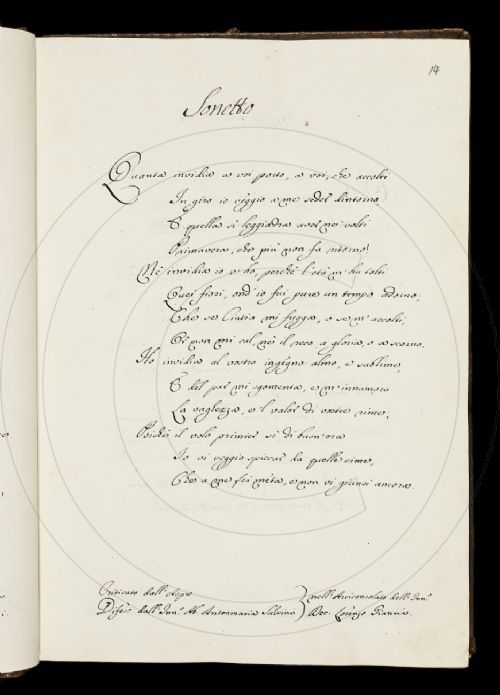 14
Sonetto
Quanta invidia a voi porto, a voi, che accolti
In giro io veggio a me seder dintorno,
E quella sì leggiadra aver ne' volti
Primavera, che più non fa ritorno!
Nè invidia io v' ho, perchè l'età m' ha tolti
Quei fiori, ond' io fui pure un tempo adorno,
Che se Cintia mi fugga, o se m' ascolti,
Or non mi cal, nè il reco a gloria, o a scorno.
Ho invidia al vostro ingegno almo, e sublime,
E del par mi sgomenta, e m' innamora
La vaghezza, e 'l valor di vostre rime;
Poichè il volo primier sì di buon'ora
Io vi veggio spiccar da quelle cime,
Che a me fur mèta, e non vi giunsi ancora.
Criticato dall'
Difeso dall' Inn.º Ab. Antonmaria Salvini
nell' Arciconsolato dell' Inn.º